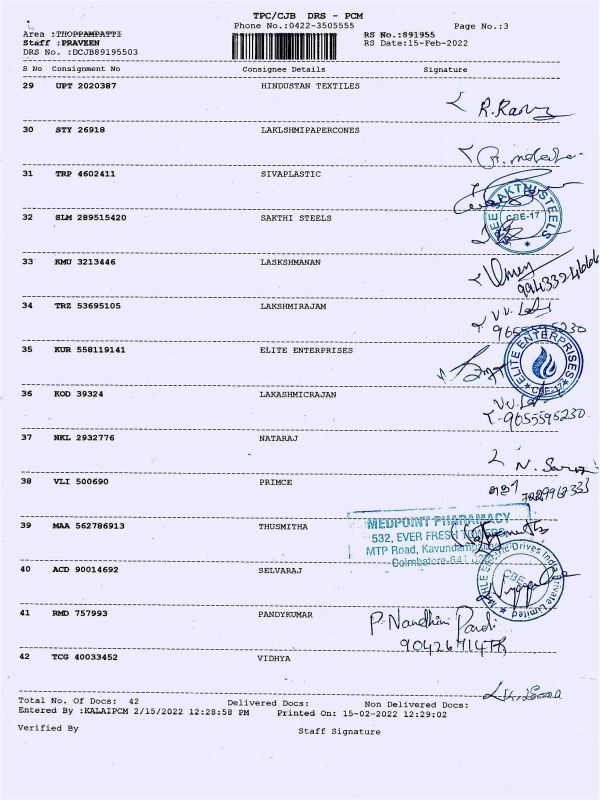 TPC/CJB DRS - PCM
Phone No.:0422-3505555 Page No.:3
Area :THOPPAMPATTI RS No.:891955
Staff :PRAVEEN RS Date:15-Feb-2022
DRS No. :DCJB89195503
S No Consignment No Consignee Details Signature
29 UPT 2020387 HINDUSTAN TEXTILES
30 STY 26918 LAKLSHMIPAPERCONES
31 TRP 4602411 SIVAPLASTIC
32 SLM 289515420 SAKTHI STEELS
SREE SAKTHI STEELS
CBE-17
33 KMU 3213446 LASKSHMANAN
34 TRZ 53695105 LAKSHMIRAJAM
9655595230
35 KUR 558119141 ELITE ENTERPRISES
ELITE ENTERPRISES
CBE-17
36 KOD 39324 LAKASHMICRAJAN
9655595230
37 NKL 2932776 NATARAJ
38 VLI 500690 PRIMCE
39 MAA 562786913 THUSMITHA
MEDPOINT PHARAMACY
532, EVER FRESH TOWERS
MTP Road,
Coimbatore-641
40 ACD 90014692 SELVARAJ
Electric Drives India Private Limited
CBE
41 RMD 757993 PANDYKUMAR
P. Nandhini Pandi
42 TCG 40033452 VIDHYA
Total No. Of Docs: 42 Delivered Docs: Non Delivered Docs:
Entered By :KALAIPCM 2/15/2022 12:28:58 PM Printed On: 15-02-2022 12:29:02
Verified By Staff Signature